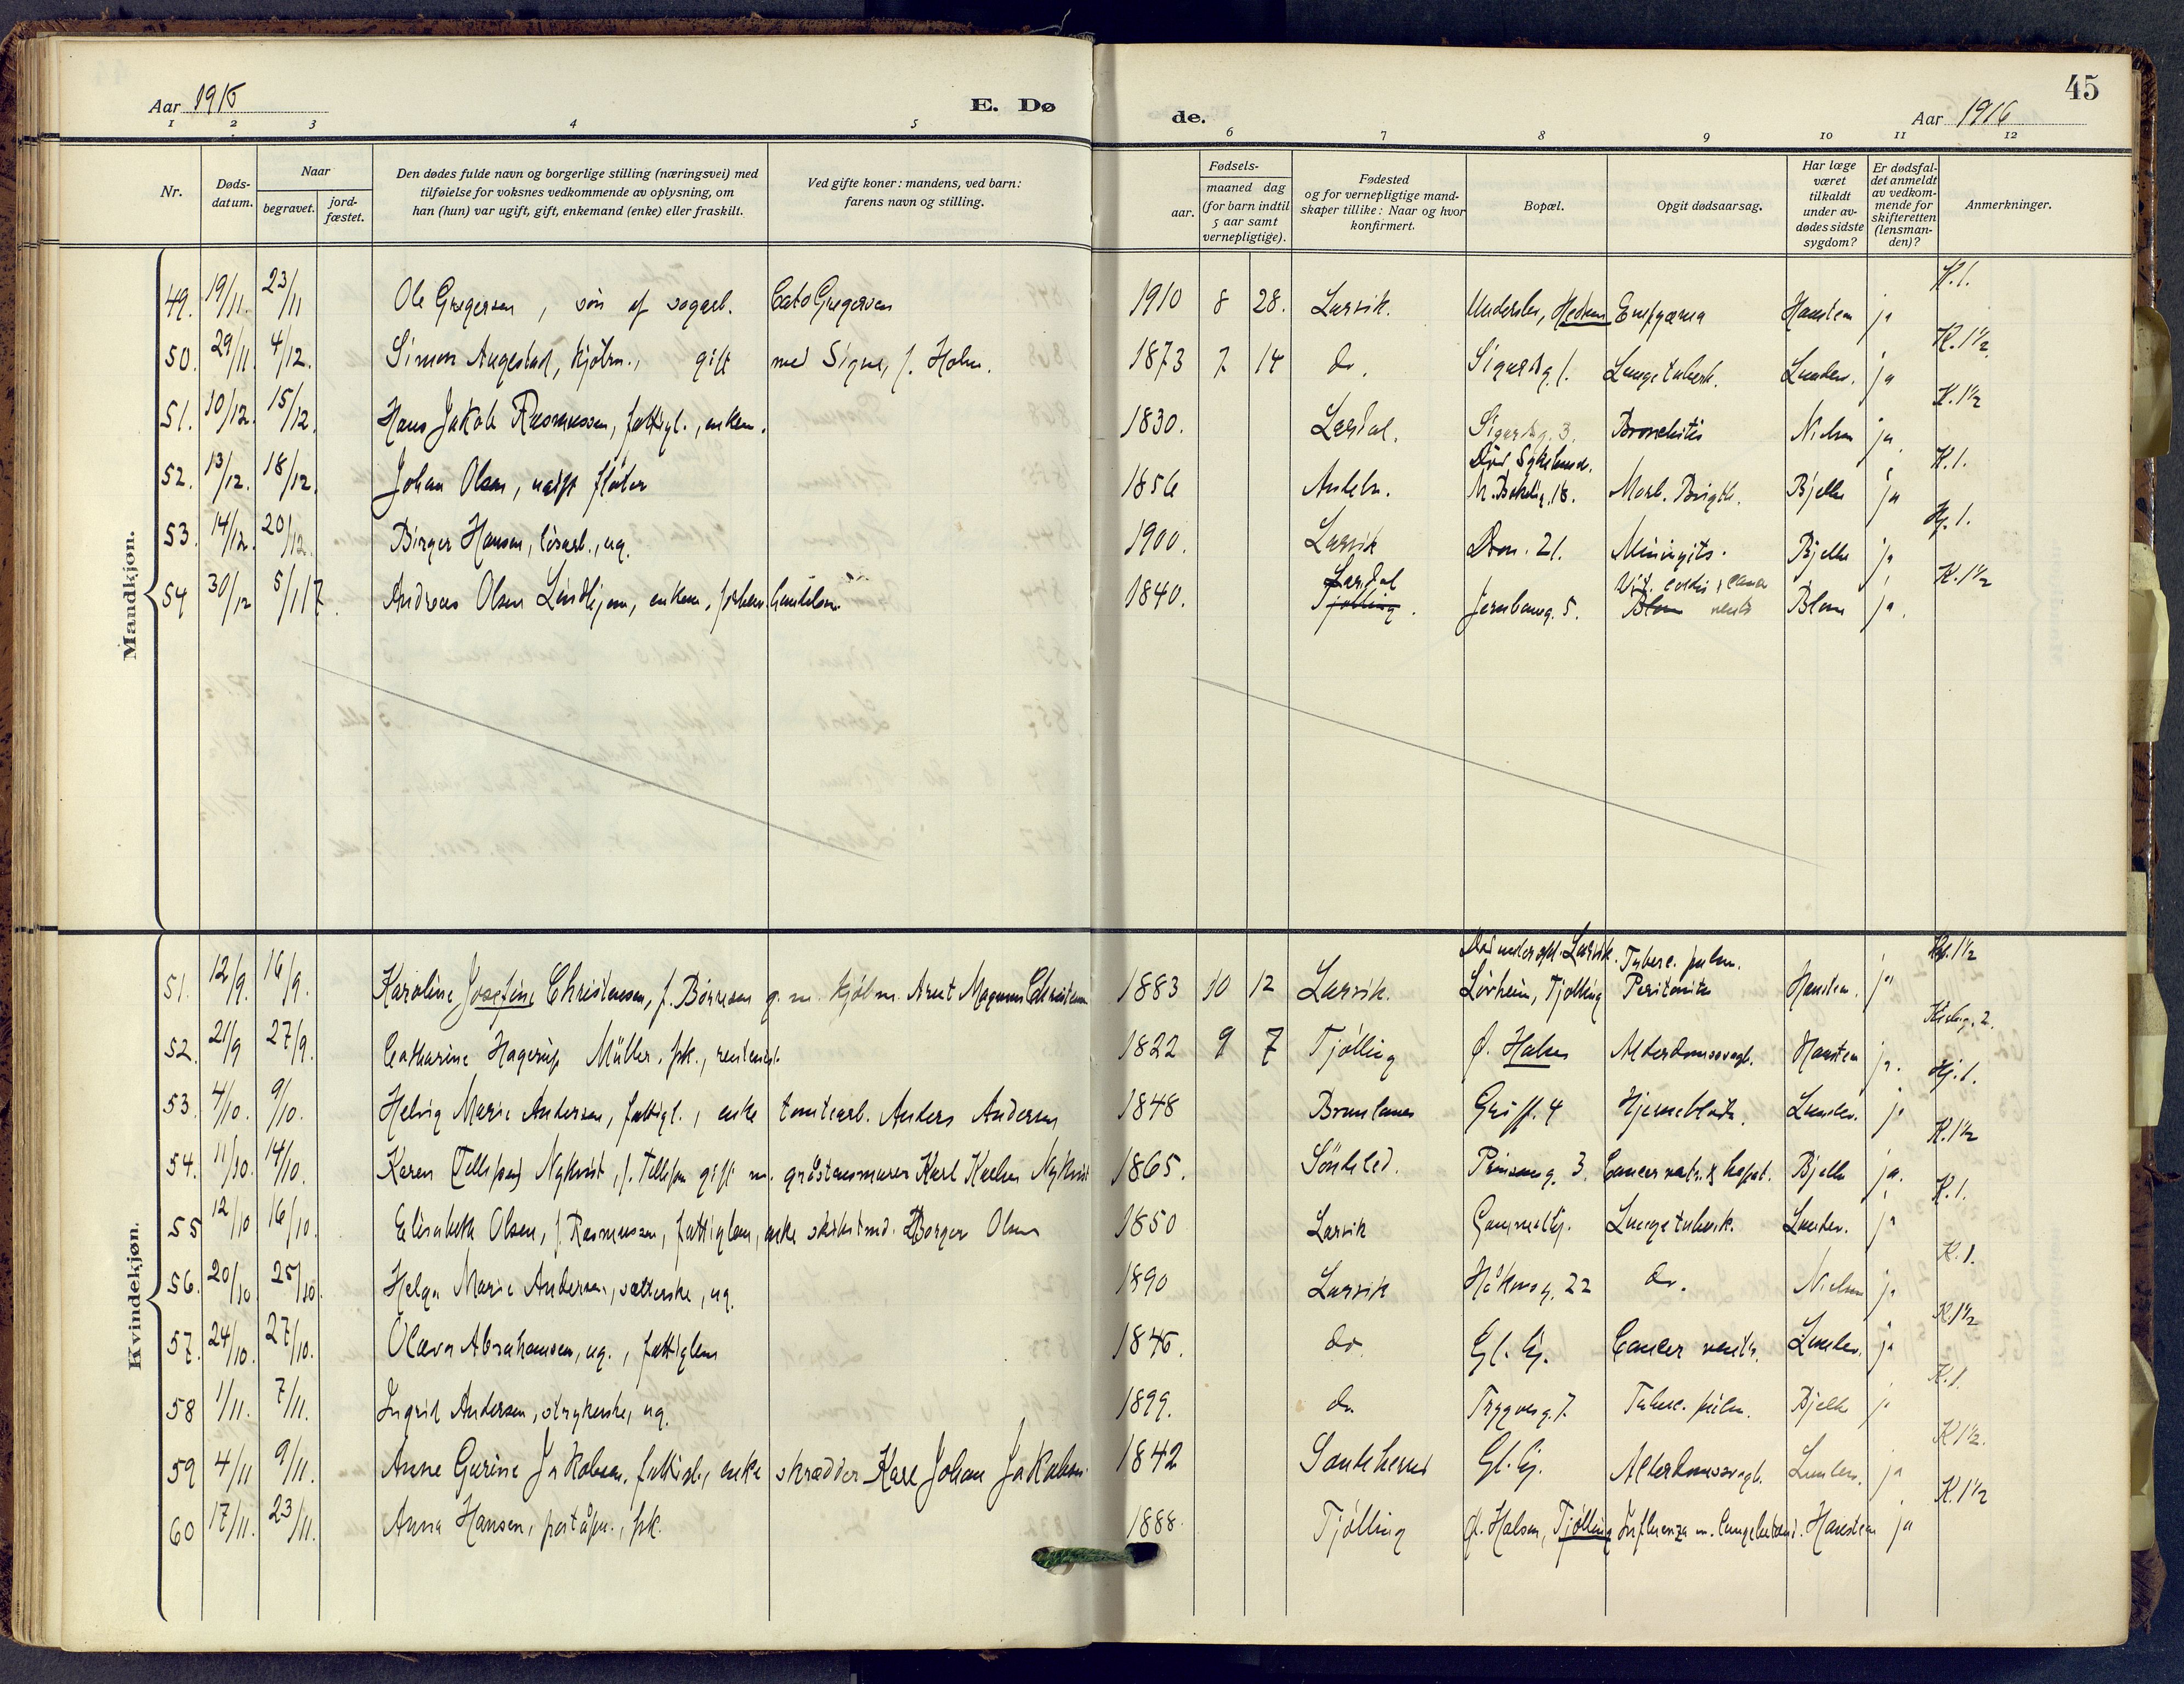 45
Aar 1916 E. Dø de. Aar 1916
1 2 3 4 5 6 7 8 9 10 11 12
Nr. Døds-datum. Naar begravet. jord-fæstet. Den dødes fulde navn og borgerlige stilling (næringsvei) med tilføielse for voksnes vedkommende av oplysning, om han (hun) var ugift, gift, enkemand (enke) eller fraskilt. Ved gifte koner: mandens, ved barn: farens navn og stilling. Fødsels- aar. maaned dag (for barn indtil 5 aar samt vernepligtige). Fødested og for vernepligtige mand-skaper tillike: Naar og hvor konfirmert. Bopæl. Opgit dødsaarsag. Har læge været tilkaldt under av-dødes sidste sygdom? Er dødsfal-det anmeldt av vedkom-mende for skifteretten (lensman-den)? Anmerkninger.
Mandkjøn.
49. 19/11. 23/11 Ole Gregersen, søn af sagarb. Cato Gregersen 1910 8 28. Larvik. Undersbo, Hedrum Empyæma Hanstein ja K.1.
50. 29/11. 4/12. Simon Angestad, kjølm., gift med Signe, f. Holm. 1873 7 14 do. Sigurdsg. 1. Lungetuberk. Lunden. ja K.1½
51. 10/12. 15/12. Hans Jakob Rasmussen, fattigl., enkem. 1830. Lardal. Sigurdsg. 3. Bronchitis Nielsen ja K.1½
52. 13/12. 18/12. Johan Olsen, ugift fløter 1856 Død Sykehuset. 18. Morb. Brigth. Bjelke ja K.1.
53. 14/12. 20/12. Birger Hansen, løsarb., ug. 1900. Larvik Dron. 21. Miningits. Bjelke ja Kj.1.
54 30/12 5/1 17. Andreas Olsen Lindhjem, enkem., forhenv. handelsm. 1840. Lardal Tjølling. Jernbaneg. 5. Vit. cordis & cancer Blom ventr Blom ja. K.1½
Kvindekjøn.
51. 12/9. 16/9. Karoline Josefine Christensen, f. Børresen g. m. kjølm. Arnt Magnus Christensen 1883 10 12 Larvik. Død under oph. Larvik. Lørheim, Tjølling Tuberc. pulm. Peritonitis Hanstein. ja Kj.1½
52. 21/9 27/9. Catharine Hagerup Müller, frk., rentenist. 1822 9 7 Tjølling Ø. Halsen Alderdomssvagh. Hanstein ja. 2.
53. 4/10. 9/10. Helvig Marie Andersen, fattigl., enke tomtearb. Anders Andersen 1848 Brunlanes Griff. 4 Hjerneblødn. Lunden. ja Kj.1.
54. 11/10. 14/10. Karen (Tellefsen) Nykvist, f. Tellefsen gift m. gråstensmurer Karl Nykvist 1865. Søndeled. Prinseng. 3. Cancer ventr. & hepat. Bjelke ja. K.1½
55 12/10 16/10. Elisabeth Olsen, f. Rasmussen, fattiglem, enke skibstmd. Børger Olsen 1850 Larvik Gammelhj. Lungetuberk. Lunden. ja K.1.
56. 20/10 25/10. Helga Marie Andersen, sætterske, ug. 1890 Larvik Håkonsg. 22 do. Nielsen ja K.1.
57. 24/10. 27/10. Olava Abrahamsen, ug., fattiglem 1846. do. Gl. hj. Cancer ventr. Lunden. ja K.1½
58 1/11. 7/11. Ingrid Andersen, strykerske, ug. 1899. do. Trygvesg. 7. Tuberc. pulm. Bjelke ja K.1.
59 4/11 9/11. Anne Gurine Jakobsen, fattigl., enke skrædder Karl Johan Jakobsen 1842 Sandeherred Gl. hj. Alderdomssvagh. Lunden. ja K 1½.
60 17/11. 23/11. Anna Hansen, poståpn., frk. 1888. Tjølling Ø. Halsen, Tjølling Influenza m. lungebetænd. Hanstein ja K.1½